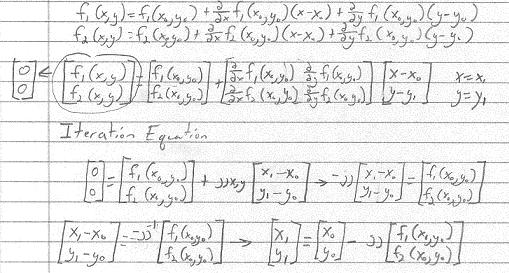 f₁(x,y)=f₁(x₀,y₀)+∂/∂x f₁(x₀,y₀)(x-x₀)+∂/∂y f₁(x₀,y₀)(y-y₀)
f₂(x,y)=f₂(x₀,y₀)+∂/∂x f₂(x₀,y₀)(x-x₀)+∂/∂y f₂(x₀,y₀)(y-y₀)
[0; 0] ← [f₁(x,y); f₂(x,y)] = [f₁(x₀,y₀); f₂(x₀,y₀)] + [∂/∂x f₁(x₀,y₀) ∂/∂y f₁(x₀,y₀); ∂/∂x f₂(x₀,y₀) ∂/∂y f₂(x₀,y₀)] [x-x₀; y-y₁] x=x₁ y=y₁
Iteration Equation
[0; 0] = [f₁(x₀,y₀); f₂(x₀,y₀)] + JJx,y [x₁-x₀; y₁-y₀] → -JJ [x₁-x₀; y₁-y₀] = [f₁(x₀,y₀); f₂(x₀,y₀)]
[x₁-x₀; y₁-y₀] = -JJ⁻¹ [f₁(x₀,y₀); f₂(x₀,y₀)] → [x₁; y₁] = [x₀; y₀] - JJ [f₁(x₀,y₀); f₂(x₀,y₀)]